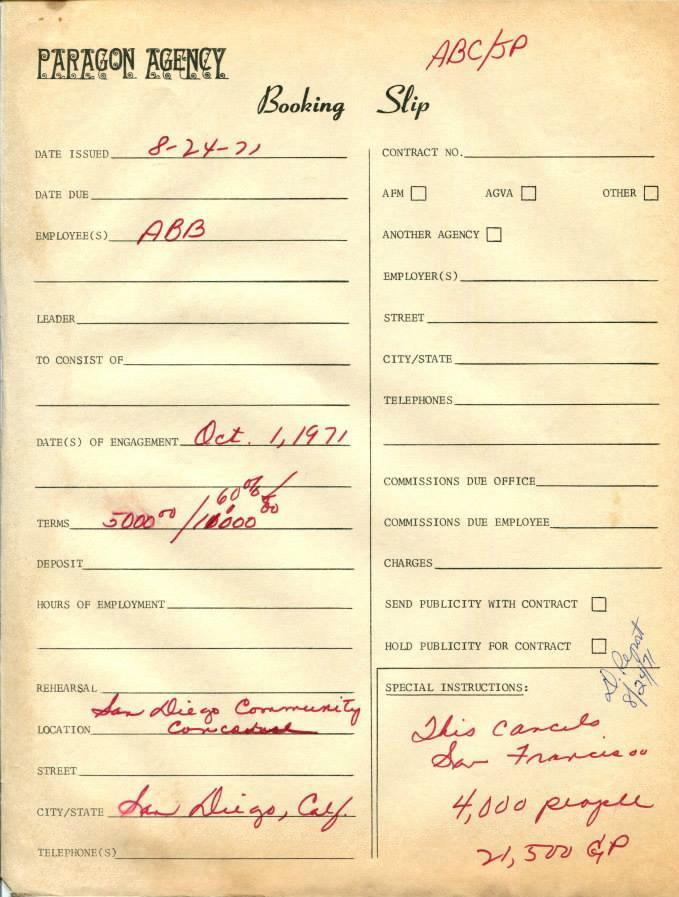 PARAGON AGENCY
ABC/JP
Booking Slip
DATE ISSUED 8-24-71
DATE DUE
EMPLOYEE(S) ABB
LEADER
TO CONSIST OF
DATE(S) OF ENGAGEMENT Oct. 1, 1971
60%/
TERMS 5000.00 / 10,000.00
DEPOSIT
HOURS OF EMPLOYMENT
REHEARSAL
San Diego Community
LOCATION
STREET
CITY/STATE San Diego, Calf.
TELEPHONE(S)
CONTRACT NO.
AFM AGVA OTHER
ANOTHER AGENCY
EMPLOYER(S)
STREET
CITY/STATE
TELEPHONES
COMMISSIONS DUE OFFICE
COMMISSIONS DUE EMPLOYEE
CHARGES
SEND PUBLICITY WITH CONTRACT
HOLD PUBLICITY FOR CONTRACT
D. Report
8/24/71
SPECIAL INSTRUCTIONS:
This cancels
San Francisco
4,000 people
21,500 GP